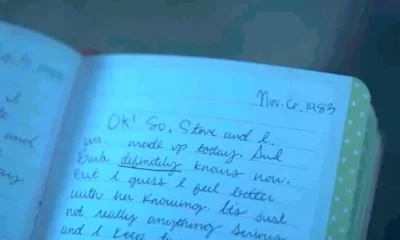 Nov. 6, 1983
OK! So, Steve and I
um.. made up today. And
Barb definitely knows now.
But I guess I feel better
with her knowing. It's just
not really anything serious
and I keep
and